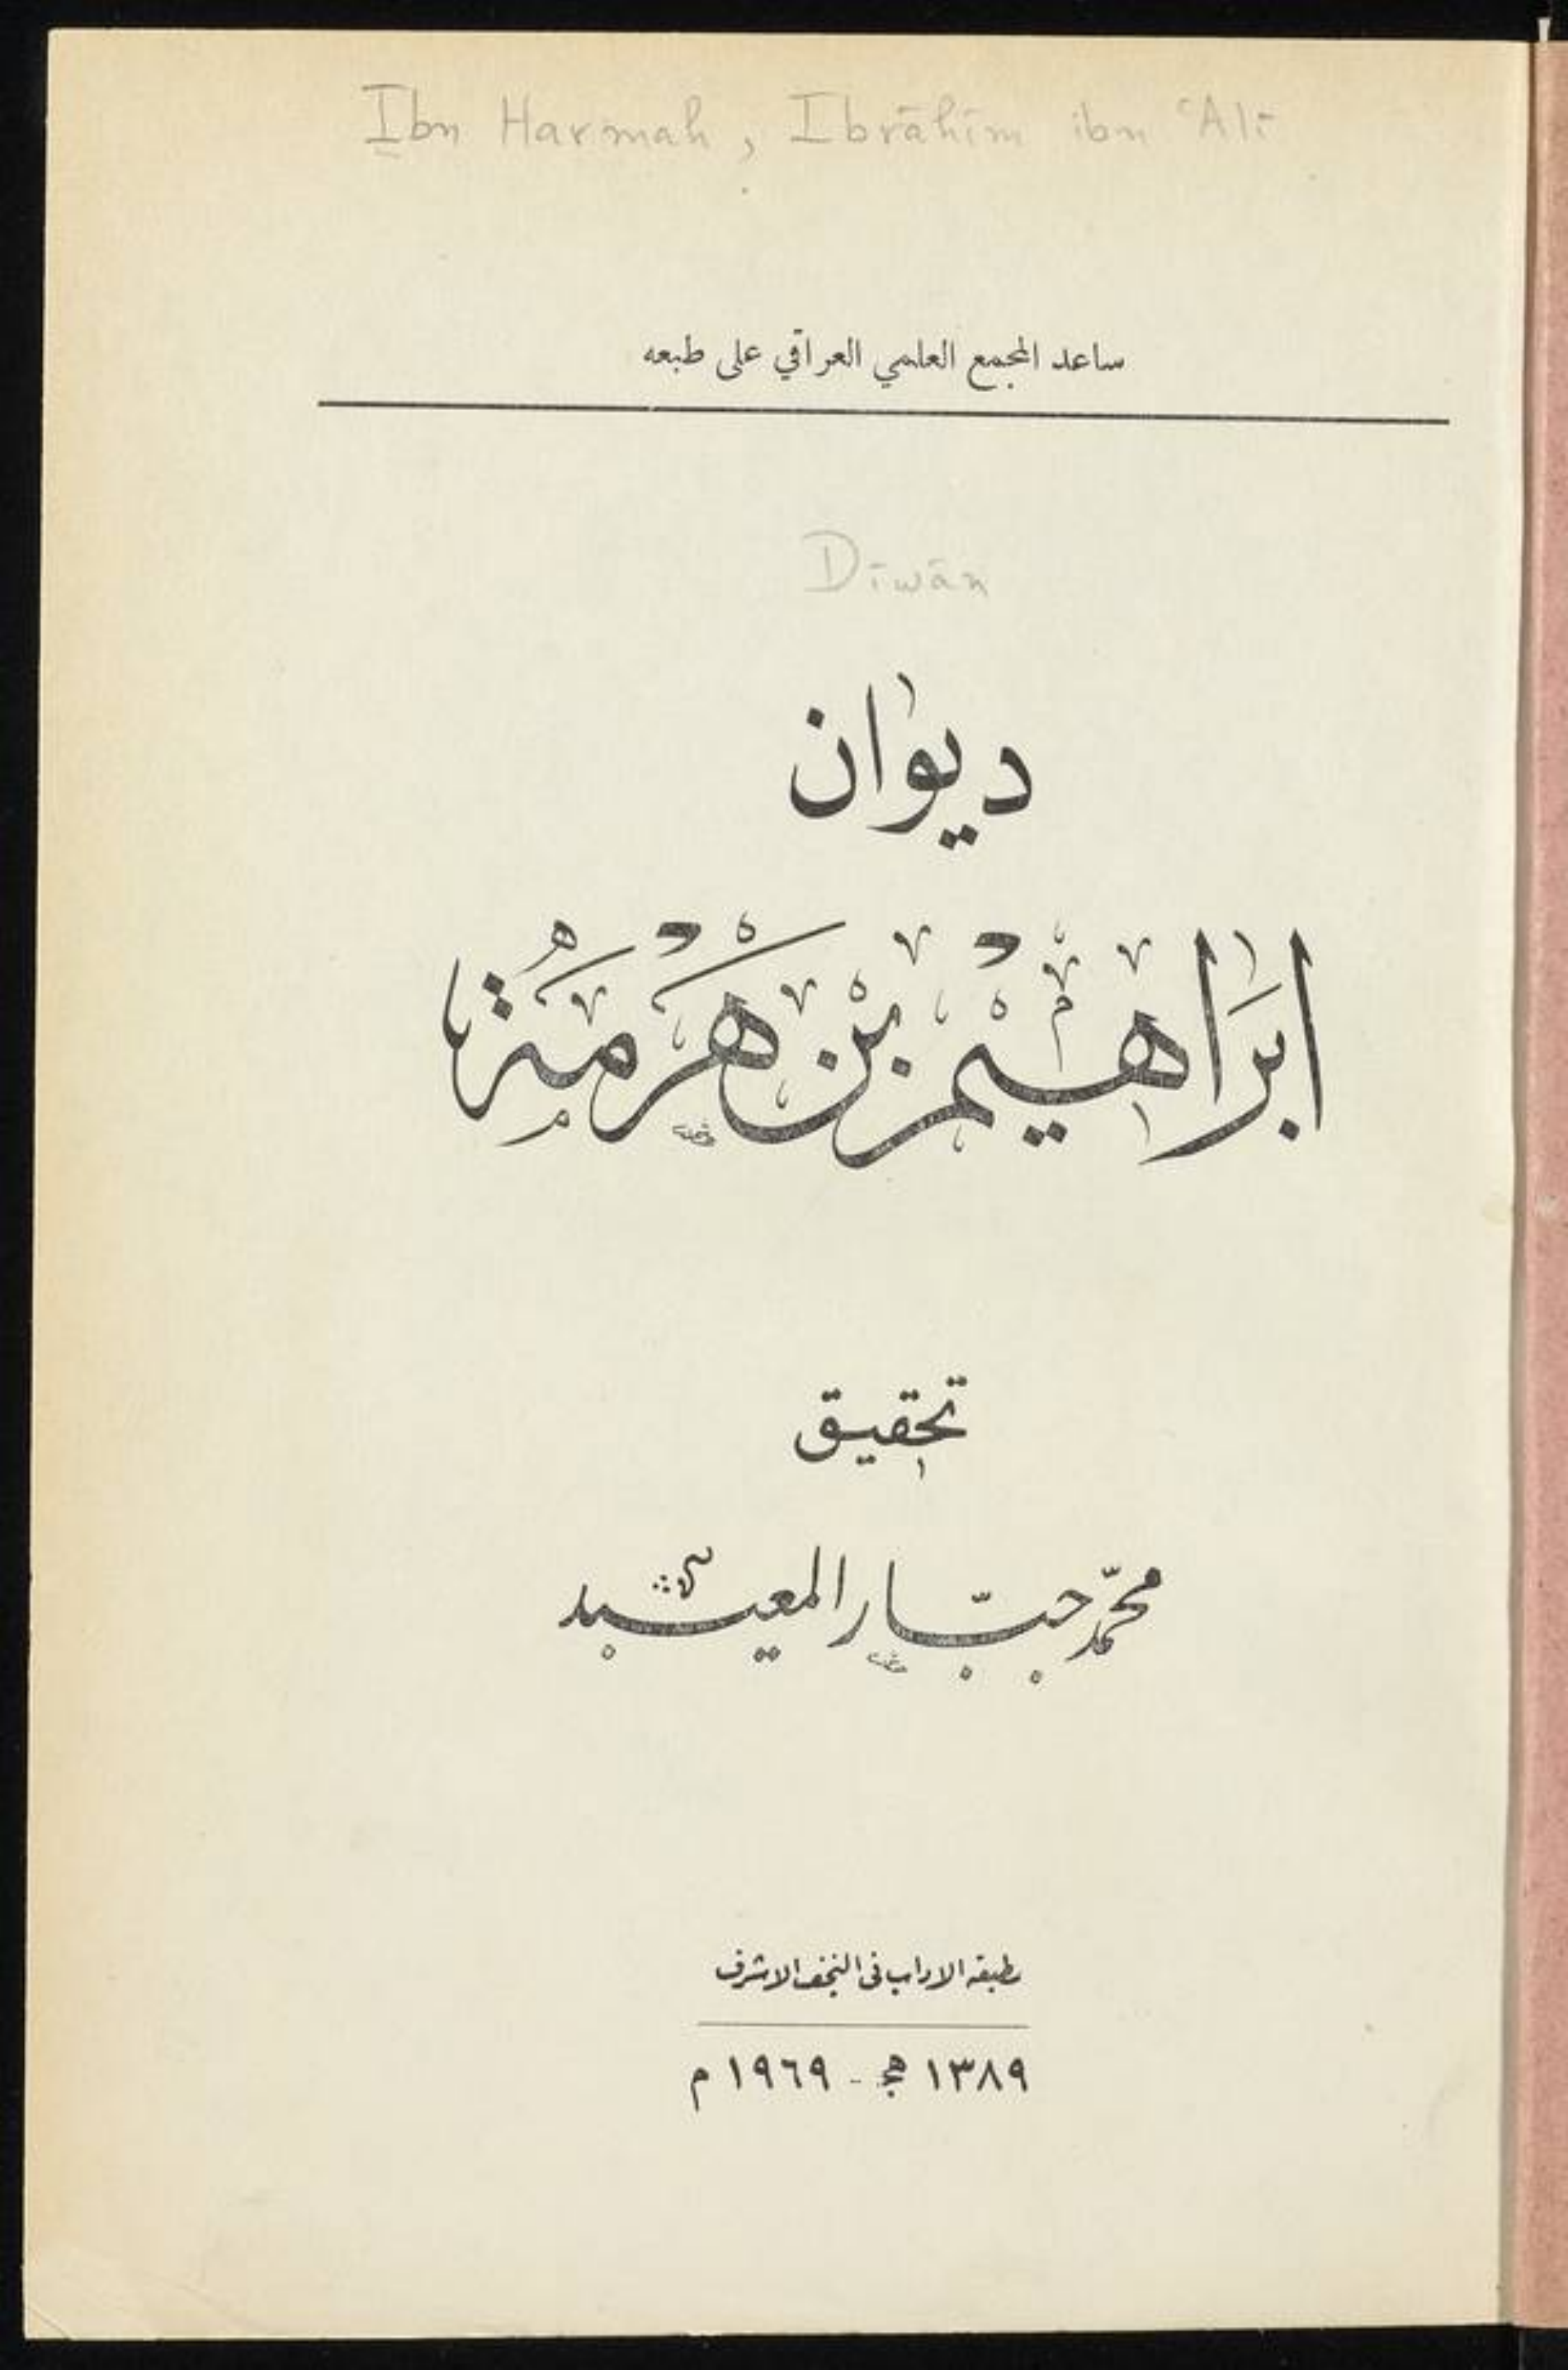 Ibn Harmah, Ibrāhīm ibn ʿAlī
ساعد المجمع العلمي العراقي على طبعه
Dīwān
ديوان
ابراهيم بن هرمة
تحقيق
محمّد جبّار المعيبد
مطبعة الاداب في النجف الاشرف
١٣٨٩ هج - ١٩٦٩ م